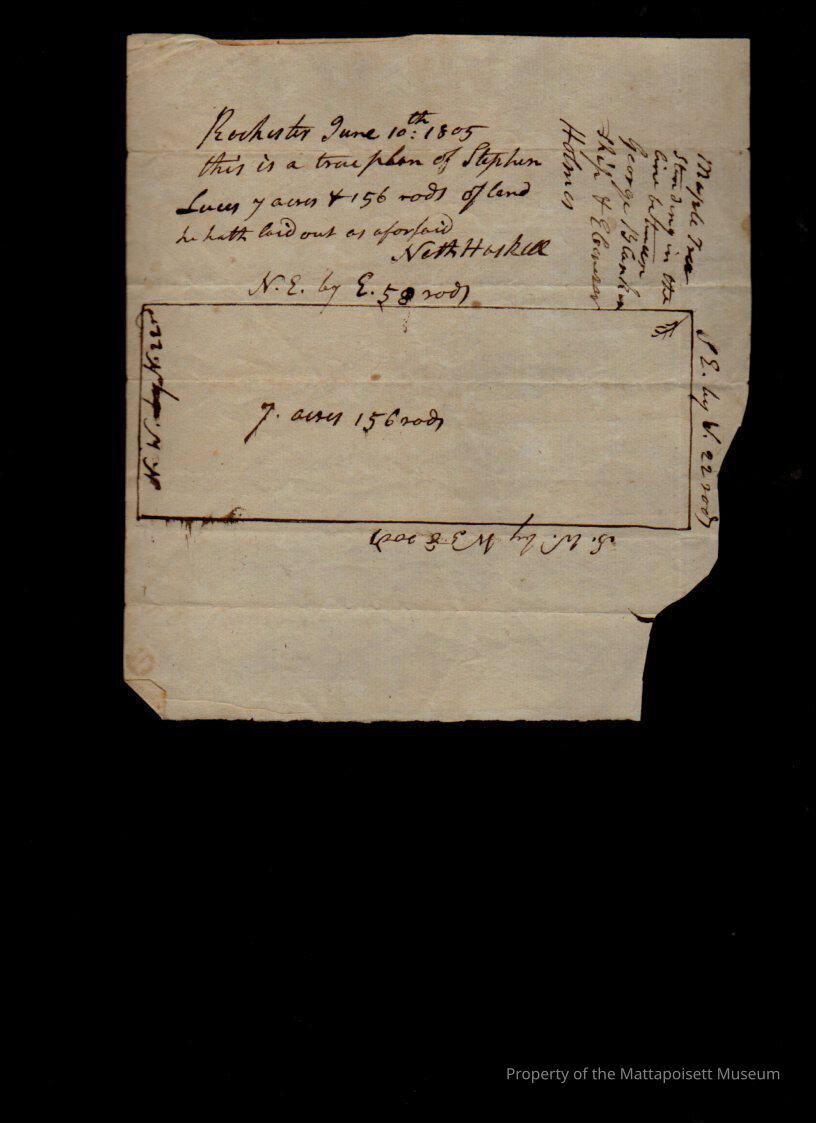 Rochester June 10th: 1805
this is a true plan of Stephen
Luces 7 acres & 156 rods of land
he hath laid out as aforsaid
Neth Haskell
Maple Tree
standing in the
line between
George Blankin
ship & Ebenezer
Holmes
N. E. by E. 58 rods
S E. by S. 22 rods
7. acres 156 rods
S. W. by W
N. W
Property of the Mattapoisett Museum